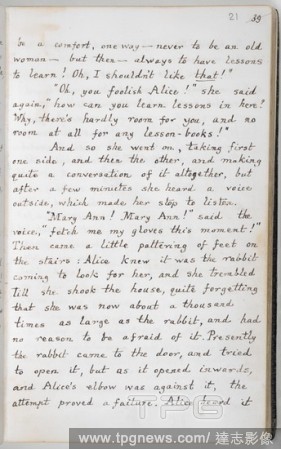 21 39
be a comfort, one way — never to be an old
woman — but then — always to have lessons
to learn! Oh, I shouldn't like that!"
"Oh, you foolish Alice!" she said
again, "how can you learn lessons in here?
Why, there's hardly room for you, and no
room at all for any lesson-books!"
And so she went on, taking first
one side, and then the other, and making
quite a conversation of it altogether, but
after a few minutes she heard a voice
outside, which made her stop to listen.
"Mary Ann! Mary Ann!" said the
voice, "fetch me my gloves this moment!"
Then came a little pattering of feet on
the stairs: Alice knew it was the rabbit
coming to look for her, and she trembled
till she shook the house, quite forgetting
that she was now about a thousand
times as large as the rabbit, and had
no reason to be afraid of it. Presently
the rabbit came to the door, and tried
to open it, but as it opened inwards,
and Alice's elbow was against it, the
attempt proved a failure. Alice heard it
TPG
www.tpgnews.com/ 達志影像